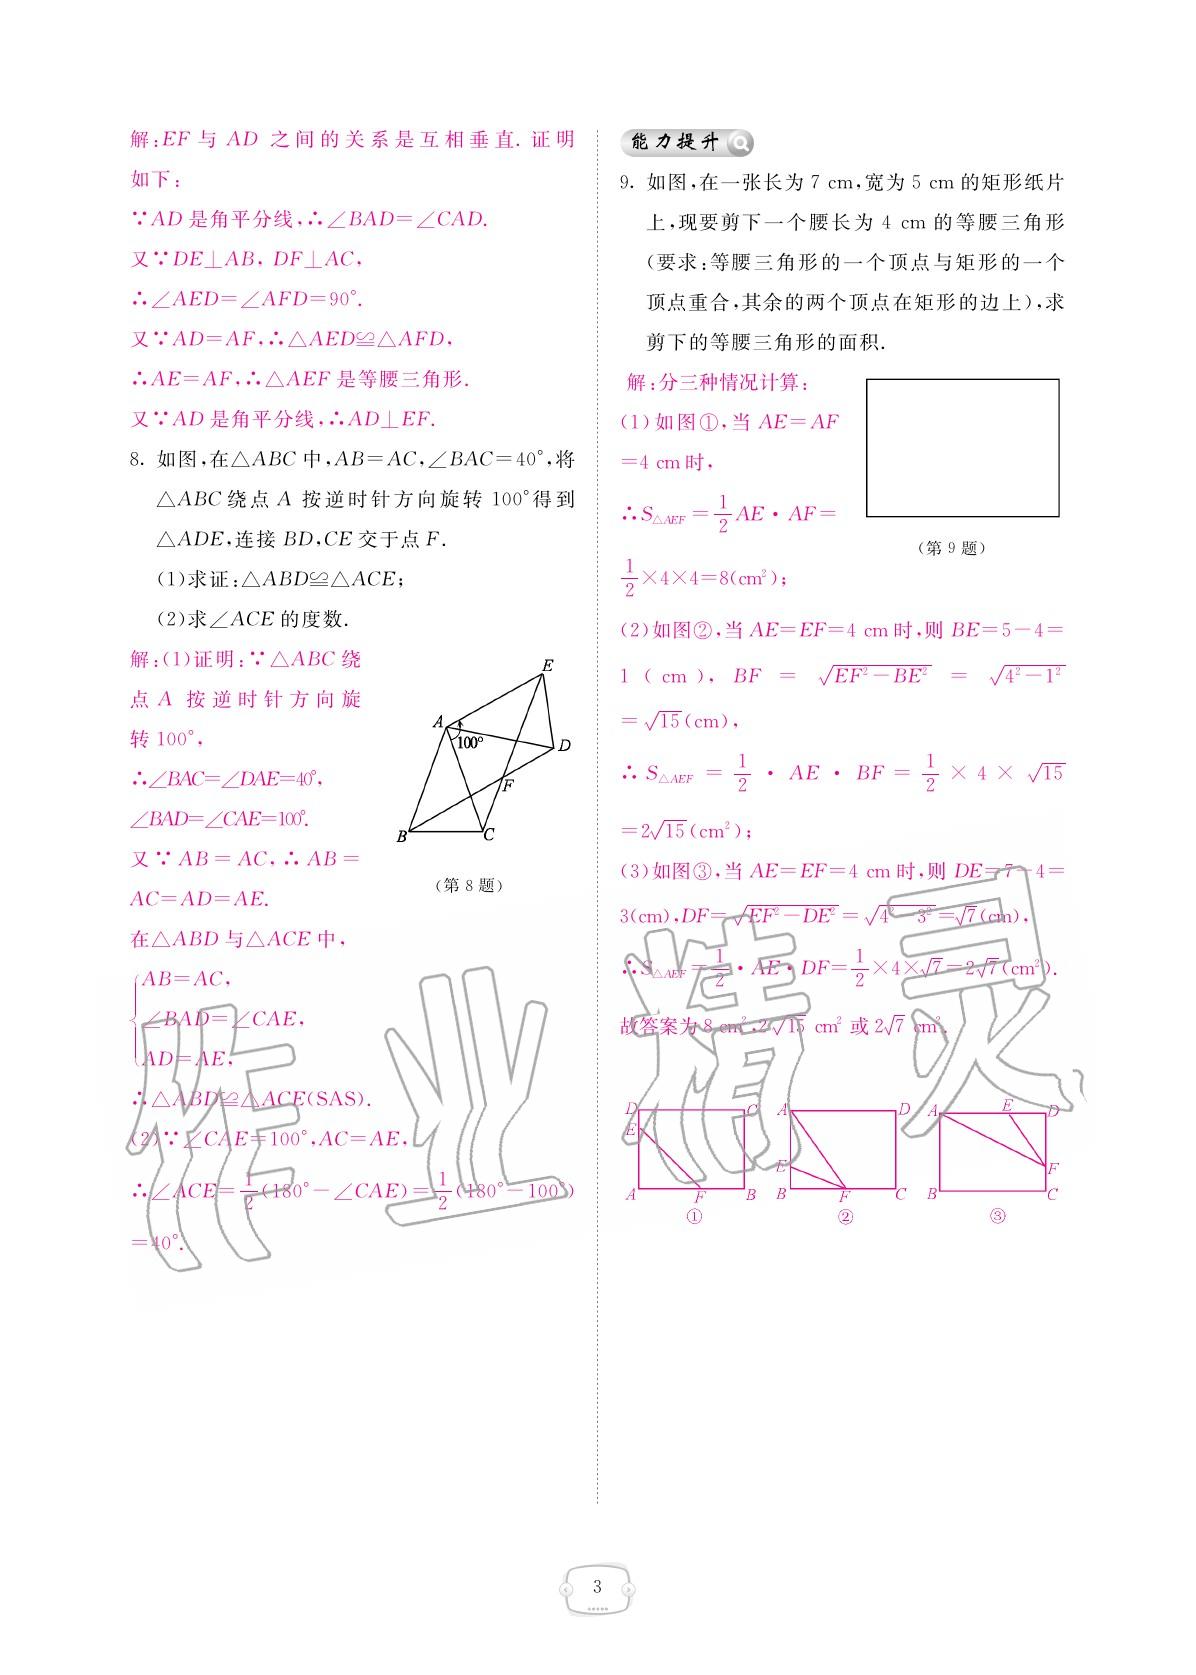 解:EF 与 AD 之间的关系是互相垂直. 证明
如下:
∵AD 是角平分线,∴∠BAD=∠CAD.
又∵DE⊥AB, DF⊥AC,
∴∠AED=∠AFD=90°.
又∵AD=AF,∴△AED≌△AFD,
∴AE=AF,∴△AEF 是等腰三角形.
又∵AD 是角平分线,∴AD⊥EF.
8. 如图,在△ABC 中,AB=AC,∠BAC=40°,将
△ABC 绕点 A 按逆时针方向旋转 100°得到
△ADE,连接 BD,CE 交于点 F.
(1)求证:△ABD≌△ACE;
(2)求∠ACE 的度数.
解:(1)证明:∵△ABC 绕
点 A 按逆时针方向旋
转 100°,
∴∠BAC=∠DAE=40°,
∠BAD=∠CAE=100°.
又∵AB=AC,∴AB=
AC=AD=AE.
E
A
100°
D
F
B
C
(第 8 题)
在△ABD 与△ACE 中,
AB=AC,
∠BAD=∠CAE,
AD=AE,
∴△ABD≌△ACE(SAS).
(2)∵∠CAE=100°,AC=AE,
∴∠ACE=1/2(180°-∠CAE)=1/2(180°-100°)
=40°.
能力提升
9. 如图,在一张长为 7 cm,宽为 5 cm 的矩形纸片
上,现要剪下一个腰长为 4 cm 的等腰三角形
(要求:等腰三角形的一个顶点与矩形的一个
顶点重合,其余的两个顶点在矩形的边上),求
剪下的等腰三角形的面积.
解:分三种情况计算:
(1)如图①,当 AE=AF
=4 cm 时,
∴S△AEF=1/2AE·AF=
(第 9 题)
1/2×4×4=8(cm²);
(2)如图②,当 AE=EF=4 cm 时,则 BE=5-4=
1(cm), BF=√(EF²-BE²)=√(4²-1²)
=√15(cm),
∴S△AEF=1/2·AE·BF=1/2×4×√15
=2√15(cm²);
(3)如图③,当 AE=EF=4 cm 时,则 DE=7-4=
3(cm),DF=√(EF²-DE²)=√(4²-3²)=√7(cm),
∴S△AEF=1/2·AE·DF=1/2×4×√7=2√7(cm²).
故答案为 8 cm²,2√15 cm² 或 2√7 cm².
D C A D A E D
E E F
A F B B F C B C
① ② ③
作业精灵
3